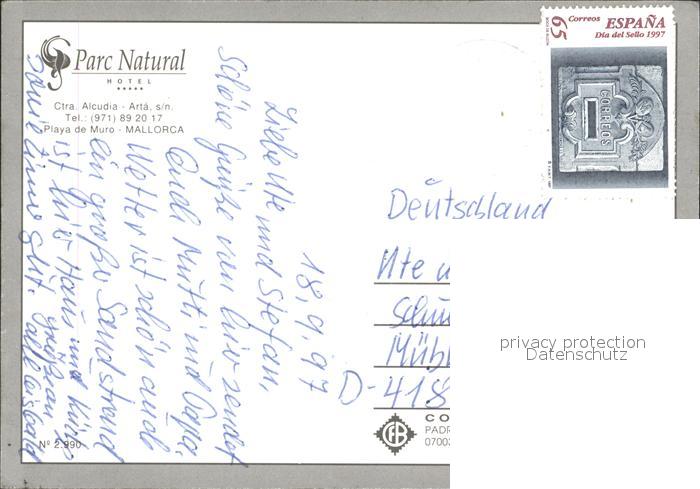 Parc Natural
HOTEL
Ctra. Alcudia - Artá, s/n.
Tel.: (971) 89 20 17
Playa de Muro - MALLORCA
65
Correos ESPAÑA
Día del Sello 1997
CORREOS
18.9.97
Liebe Ute und Stefan,
schöne Grüße von hier sendet
euch Mutti und Papa.
Wetter ist schön auch
ein großer Sandstrand
ist hier Haus und
sowie Zimmer gut.
Deutschland
Ute
Mühl
D-418
CO
PADR
0700
Nº 2.990
privacy protection
Datenschutz